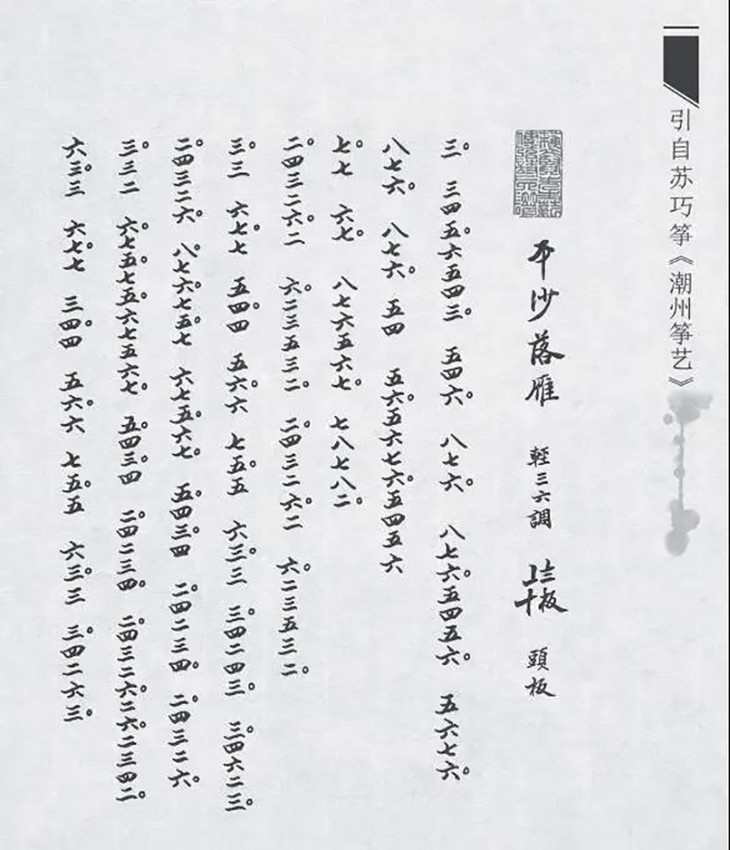 引自苏巧筝《潮州筝艺》
平沙落雁 輕三六調 三板 頭板
三。 三四五。六五四三。 五四六。 八七六。 八七六。五四五六。 五六七六。
八七六。 八七六。 五四 五六。五六七六。五四五六
七。七 六。七 八七六五六七。 七八七八二。
二。四三二六。二 六。二三五三二。 二。四三二六。二 六。二三五三二。
三。三 六。七七 五。四四 五。六六 七。五五 六。三三 三。四二。四三。 三。四六二三。
二。四三二六。 八。七六。七五。七 六。七五。六七。 五。四三。四 二。四二三四。 二。四三二六。
三。三二 六。七五。七五。六七五六七。 五。四三。四 二。四二三四。 二。四三二六。二六。二三四二。
六三。三 六。七七 三。四四 五。六六 七。五五 六。三三 三。四二六三。